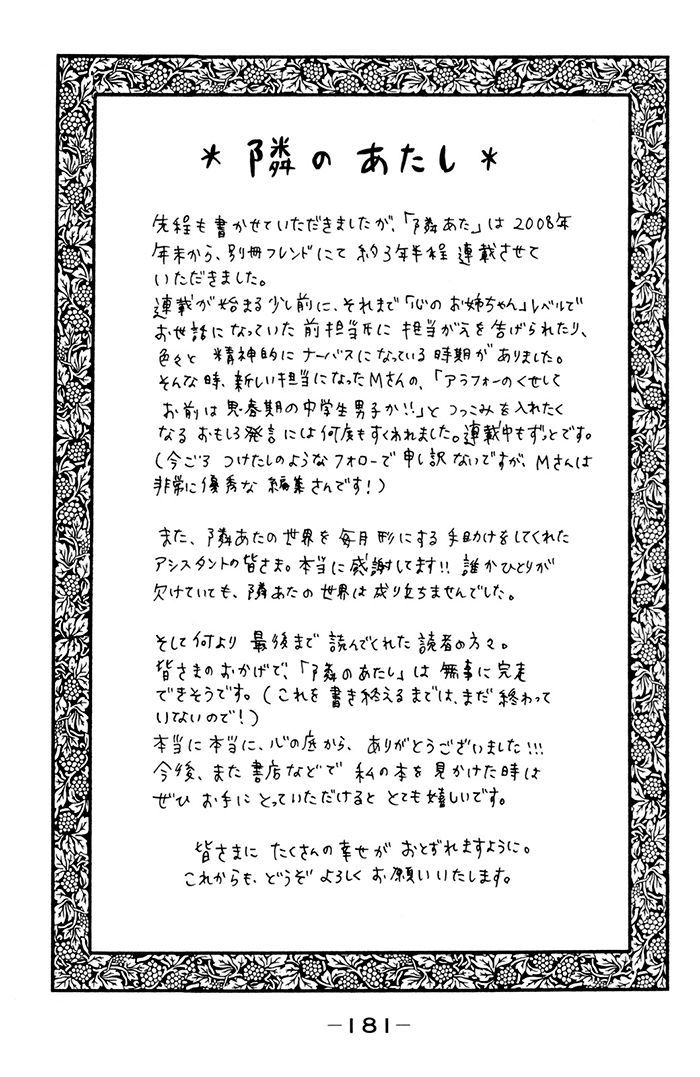 * 隣のあたし *
先程も書かせていただきましたが、「隣あた」は2008年
年末から、別冊フレンドにて約3年半程連載させて
いただきました。
連載が始まる少し前に、それまで「心のお姉ちゃん」レベルで
お世話になっていた前担当氏に担当がえを告げられたり、
色々と精神的にナーバスになっている時期がありました。
そんな時、新しい担当になったMさんの、「アラフォーのくせして
お前は思春期の中学生男子か!!」とつっこみを入れたく
なるおもしろ発言には何度もすくわれました。連載中もずっとです。
(今ごろつけたしのようなフォローで申し訳ないですが、Mさんは
非常に優秀な編集さんです!)
また、隣あたの世界を毎月形にする手助けをしてくれた
アシスタントの皆さま。本当に感謝してます!! 誰かひとりが
欠けていても、隣あたの世界は成り立ちませんでした。
そして何より最後まで読んでくれた読者の方々。
皆さまのおかげで、「隣のあたし」は無事に完走
できそうです。(これを書き終えるまでは、まだ終わって
いないので!)
本当に本当に、心の底から、ありがとうございました!!!
今後、また書店などで私の本を見かけた時は
ぜひお手にとっていただけるととても嬉しいです。
皆さまにたくさんの幸せがおとずれますように。
これからも、どうぞよろしくお願いいたします。
-181-